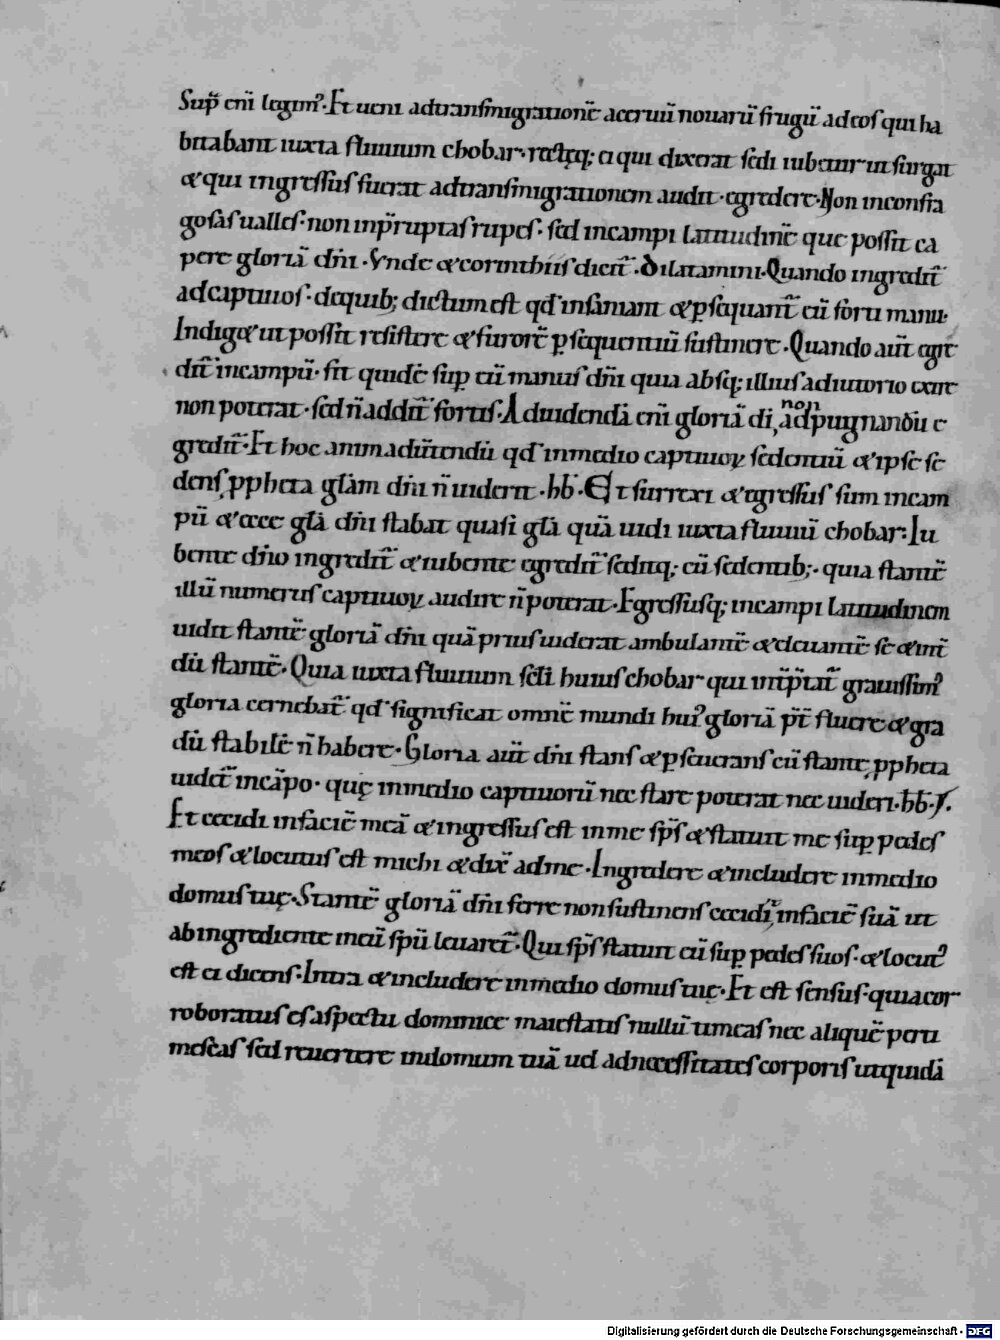 Sup̄ eni̅ legim᾿. Et ueni adtransmigratione̅ aceruu̅ nouaru̅ frugu̅ adeos qui ha
bitabant iuxta fluuium chobar. recteq; ei qui dixerat sedi iubetur ut surgat
& qui ingressus fuerat adtransmigrationem audit. egredere. Non inconfra
gosas ualles. non inp̄ruptas rupes. sed incampi latitudine̅ que possit ca
pere gloria̅ dn̅i. Vnde & corinthiis dicit᷑. Dilatamini. Quando ingredit᷑
adcaptiuos. dequib; dictum est qd̕ insaniant & ꝑsequant᷑ cu̅ forti manu.
Indig& ut possit resistere & furore̅ ꝑsequentiu̅ sustinere. Quando aut̅ egre
dit᷑ incampu̅. fit quide̅ sup̱ eu̅ manus dn̅i quia absq; illius adiutorio exire
non poterat. sed n̅ addit᷑ fortis. Aduidenda̅ eni̅ gloria̅ di̅, non adpugnandu̅ e
gredit᷑. Et hoc animaduertendu̅ qd̕ inmedio captiuoꝝ sedentiu̅ & ipse se
dens ꝓpheta gl̅am dn̅i n̅ uiderit. h̅b̅. Et surrexi & egressus sum incam
pu̅ & ecce gl̅a dn̅i stabat quasi gl̅a qua̅ uidi iuxta fluuiu̅ chobar. Iu
bente dn̅o ingredit᷑ & iubente egredit᷑ seditq; cu̅ sedentib;. quia stante̅
illu̅ numerus captiuoꝝ audire n̅ poterat. Egressusq; incampi latitudinem
uidit stante̅ gloria̅ dn̅i qua̅ prius uiderat ambulante̅ & eleuante̅ se & int̅
du̅ stante̅. Quia iuxta fluuium sc̅li huius chobar qui int̅p̅tat᷑ grauissim᾿
gloria cernebat᷑ qd̕ significat omne̅ mundi hui᾿ gloria̅ p̅t̅fluere & gra
du̅ stabile̅ n̅ habere. Gloria aut̅ dn̅i stans & ꝑseuerans cu̅ stante ꝓpheta
uidet᷑ inca̅po. quę inmedio captiuoru̅ nec stare poterat nec uideri. h̅b̅.
Et cecidi infacie̅ mea̅ & ingressus est inme sp̅s & statuit me sup̱ pedes
meos & locutus est michi & dix̅ adme. Ingredere & includere inmedio
domus tuę. Stante̅ gloria̅ dn̅i ferre non sustinens cecidit infacie̅ sua̅ ut
ab ingrediente ineu̅ sp̅u leuaret᷑. Qui sp̅s statuit eu̅ sup̱ pedes suos. & locut᾿
est ei dicens. Intra & includere inmedio domus tuę. Et est sensus. quia cor
roboratus es aspectu dominice maiestatis nullu̅ timeas nec alique̅ perti
mescas sed reuertere indomum tua̅ uel adnecessitates corporis ut quida̅